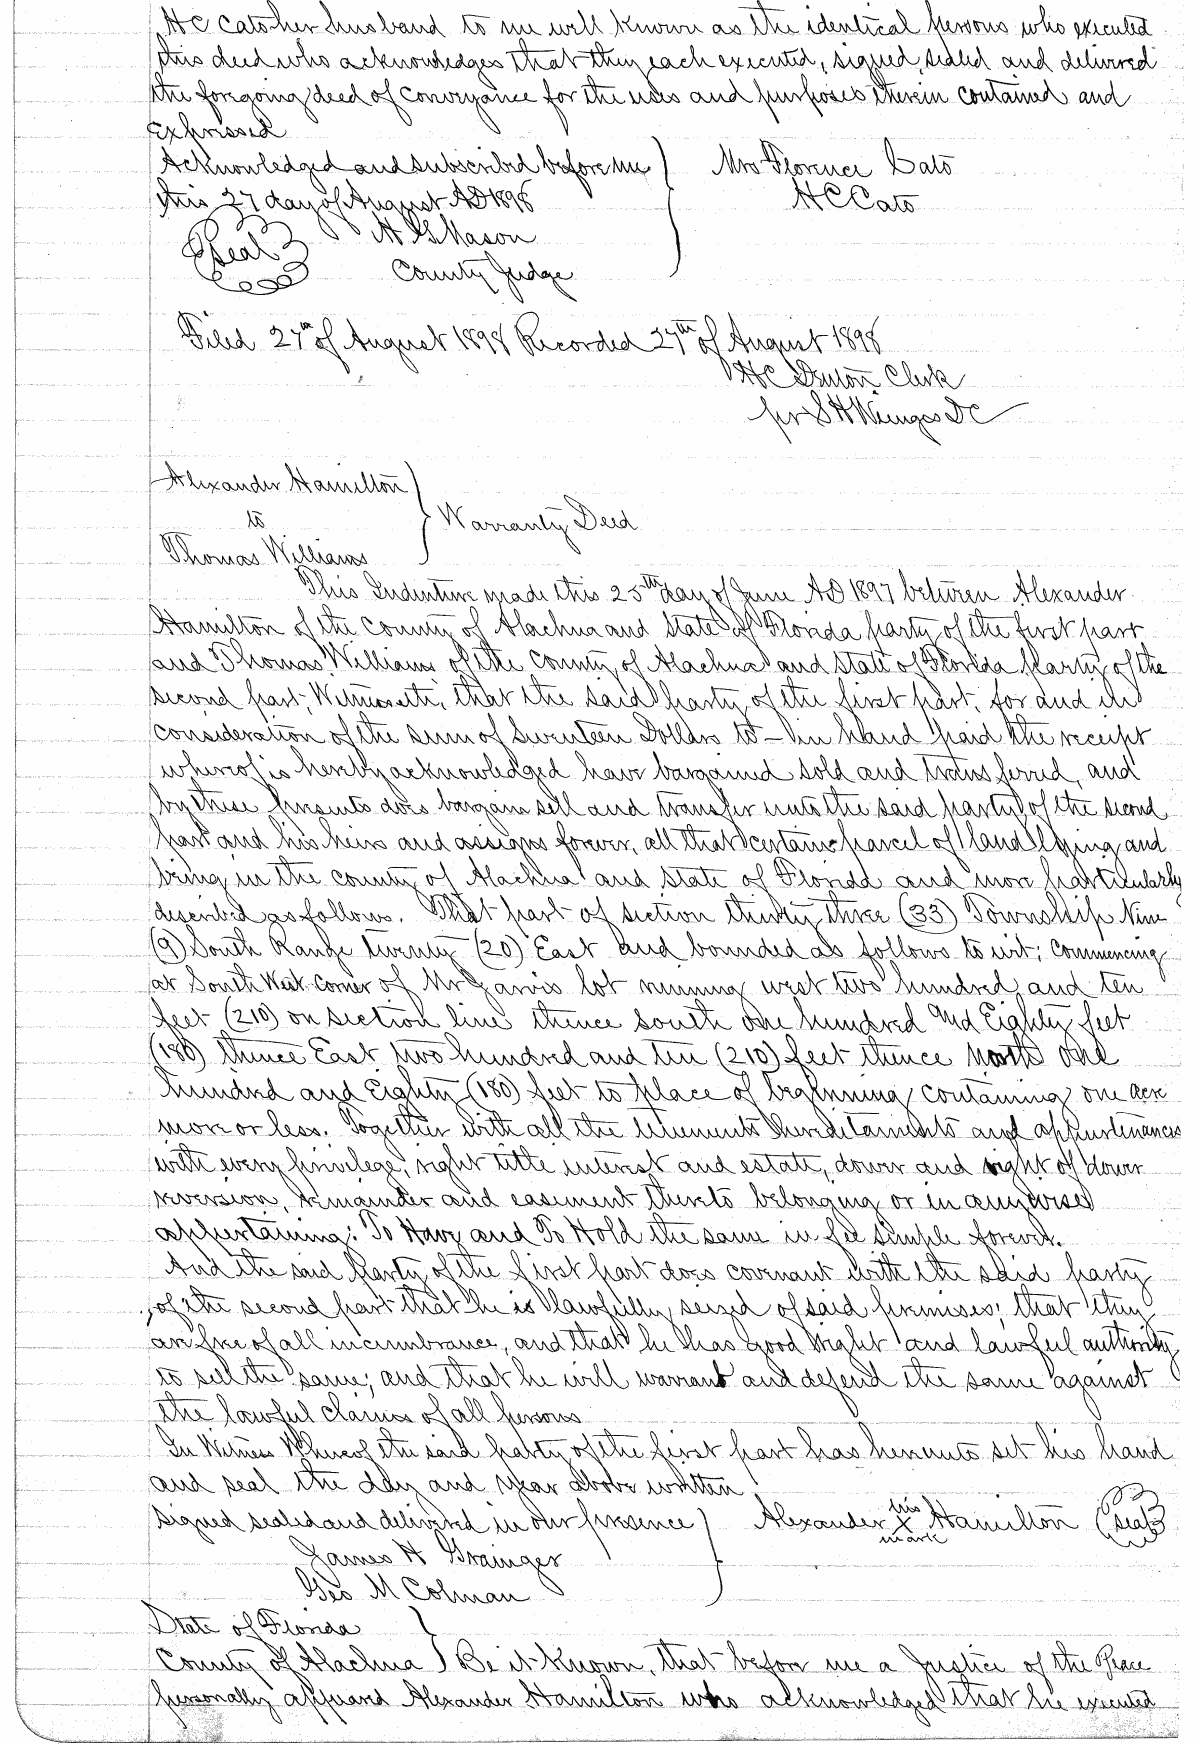 H C Cato her husband to me well known as the identical persons who executed
this deed who acknowledges that they each executed, signed, sealed and delivered
the foregoing deed of conveyance for the uses and purposes therein contained and
expressed
Acknowledged and subscribed before me } Mrs Florence Cato
this 27 day of August AD 1898 H C Cato
Seal H G Mason
County Judge
Filed 27th of August 1898 Recorded 27th of August 1898
H C Denton Clerk
pr S H Wienges DC
Alexander Hamilton
to } Warranty Deed
Thomas Williams
This Indenture made this 25th day of June AD 1897 between Alexander
Hamilton of the County of Alachua and State of Florida party of the first part
and Thomas Williams of the County of Alachua and State of Florida Party of the
second part, Witnesseth, that the said party of the first part, for and in
consideration of the sum of Seventeen Dollars to — in hand paid the receipt
whereof is hereby acknowledged have bargained sold and transferred, and
by these presents does bargain sell and transfer unto the said party of the second
part and his heirs and assigns forever, all that certain parcel of land lying and
being in the county of Alachua and State of Florida and more particularly
described as follows. That part of section thirty three (33) Township Nine
(9) South Range twenty (20) East and bounded as follows to wit; Commencing
at South West corner of Mr Jarvis lot running west two hundred and ten
feet (210) on section line thence south one hundred and Eighty feet
(180) thence East two hundred and ten (210) feet thence North one
hundred and Eighty (180) feet to place of beginning containing one acre
more or less. Together with all the tenements hereditaments and appurtenances
with every privilege, right title interest and estate, dower and right of dower
reversion, remainder and easement thereto belonging or in anywise
appertaining: To Have and To Hold the same in fee simple forever.
And the said Party of the first part does covenant with the said party
of the second part that he is lawfully seized of said premises; that they
are free of all incumbrance, and that he has good right and lawful authority
to sell the same; and that he will warrant and defend the same against
the lawful claims of all persons
In Witness Whereof the said party of the first part has hereunto set his hand
and seal the day and year above written
Signed sealed and delivered in our presence } Alexander his X mark Hamilton (Seal)
James H Grainger
Geo M Colman
State of Florida }
County of Alachua } Be it Known, that before me a Justice of the Peace
personally appeared Alexander Hamilton who acknowledged that he executed